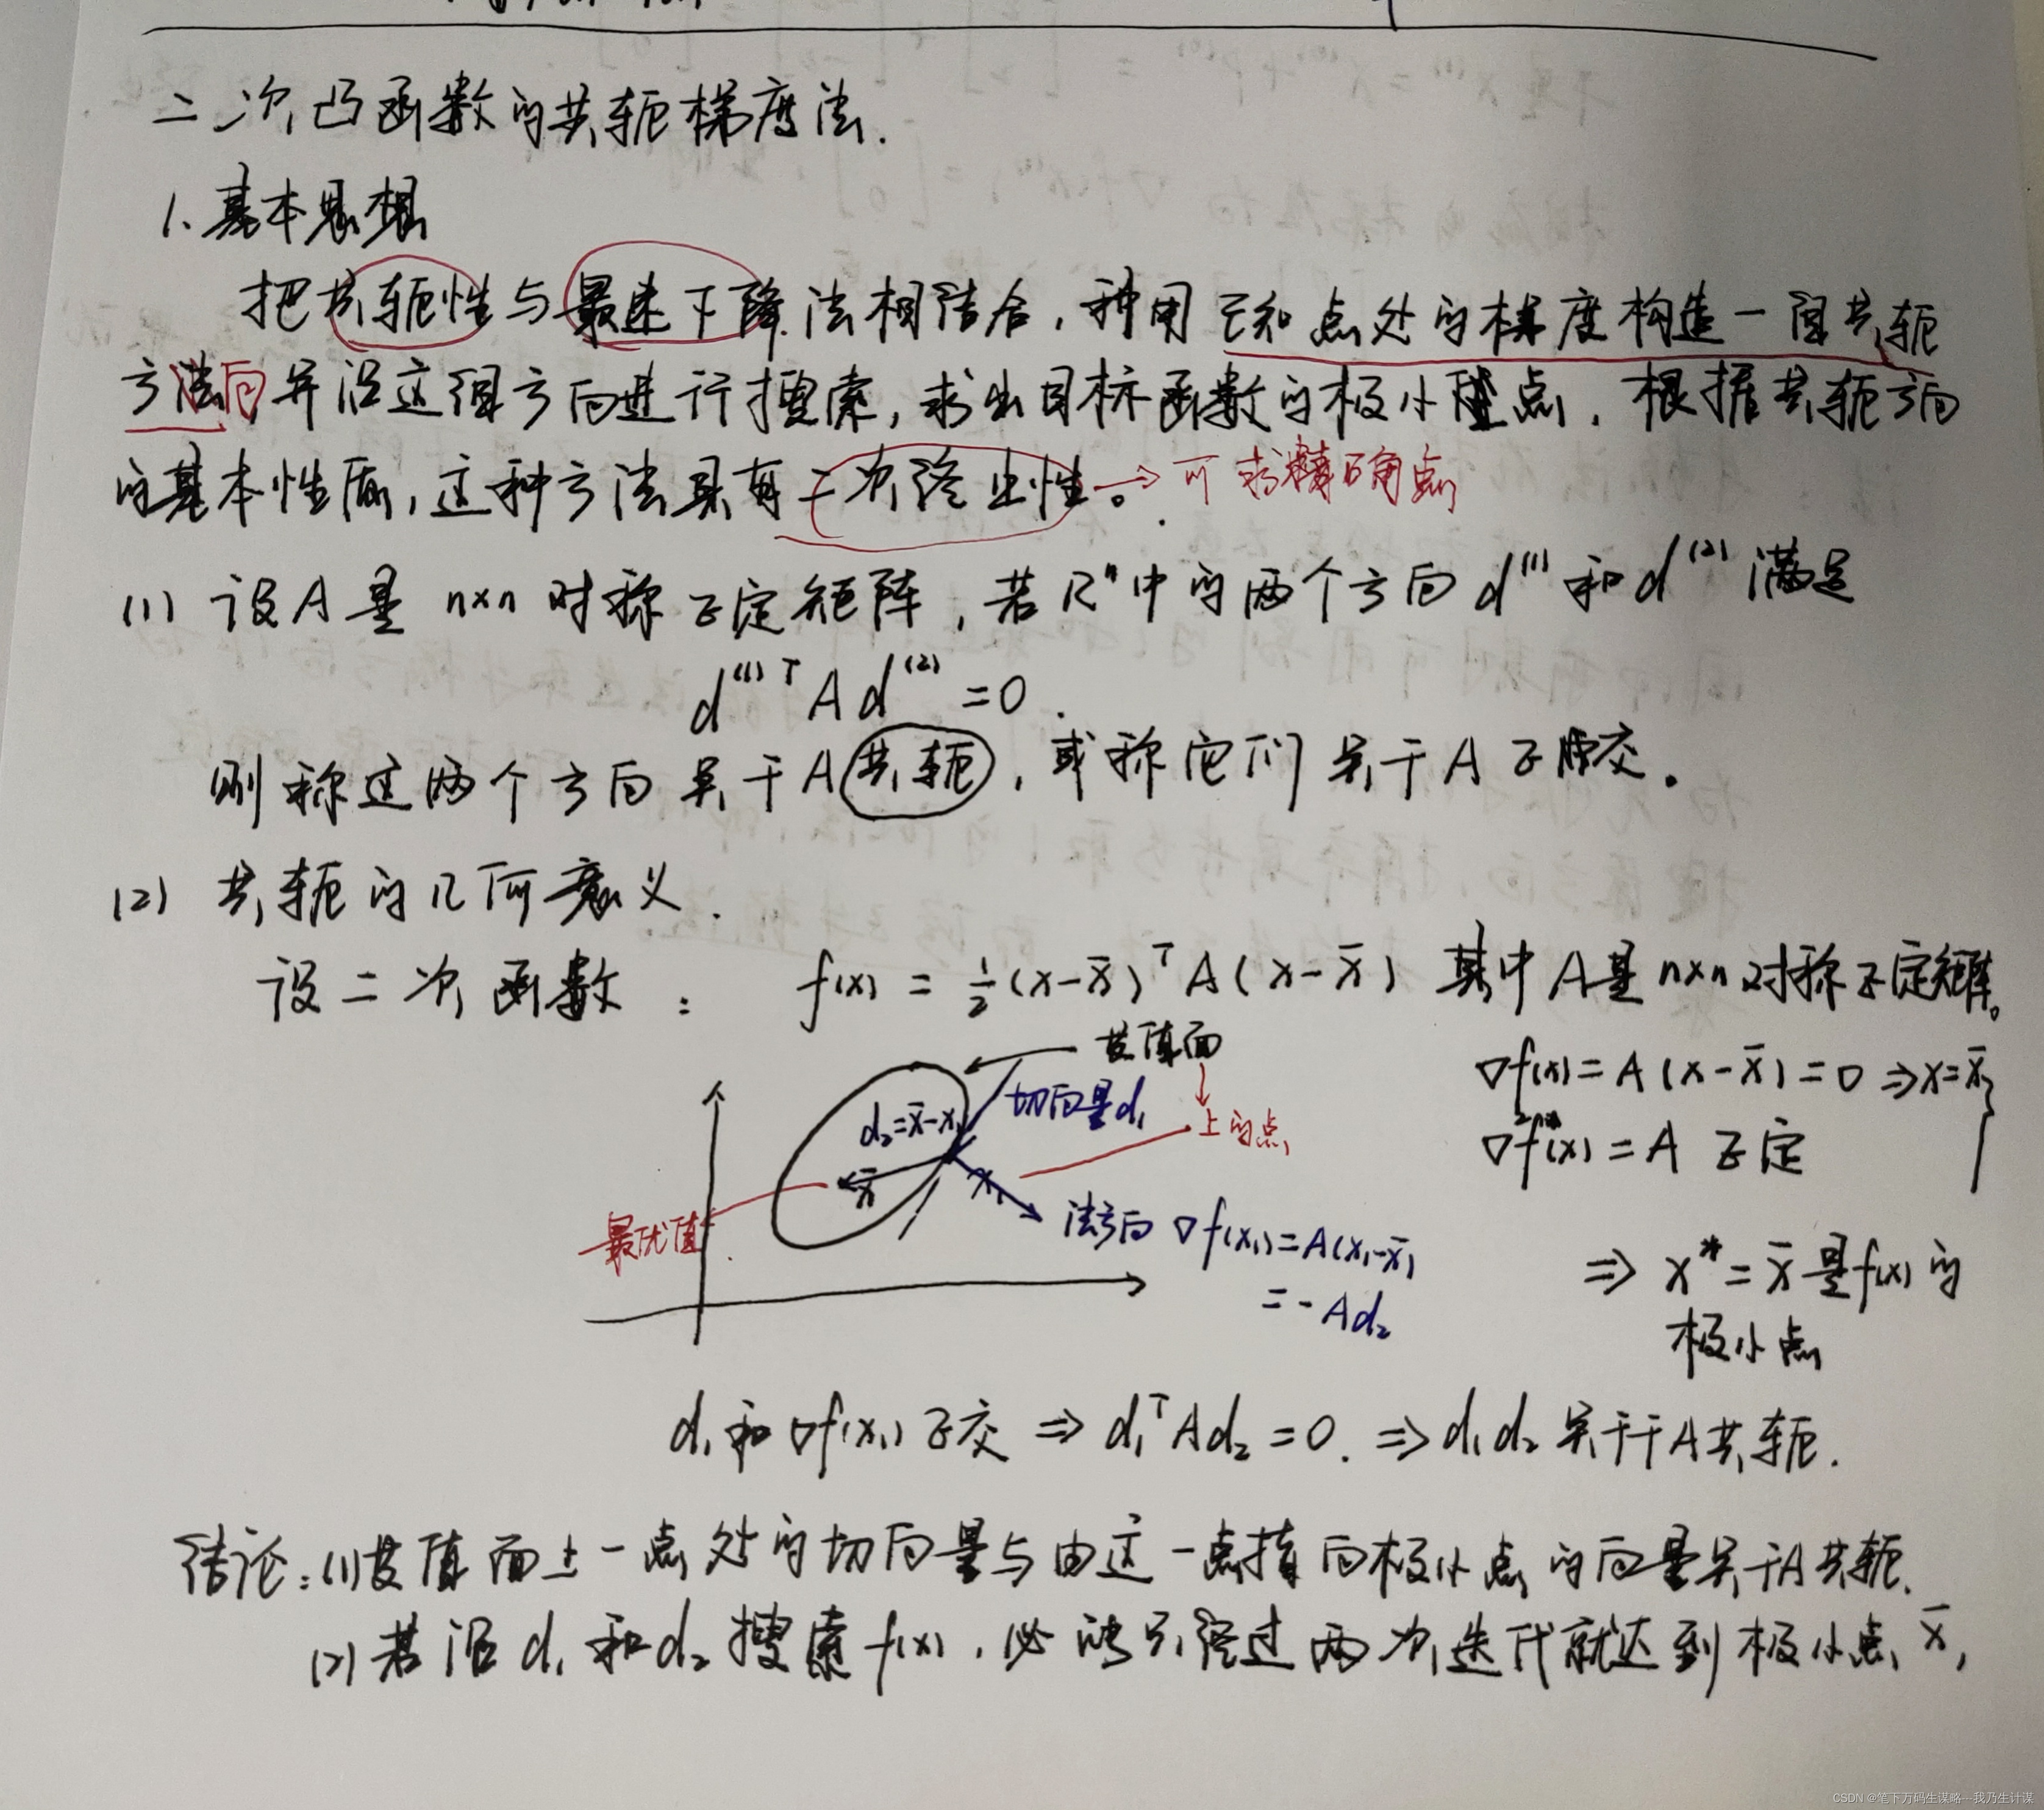 二次凸函数的共轭梯度法.
1. 基本思想
把共轭性与最速下降法相结合, 利用已知点处的梯度构造一组共轭
方向并沿这组方向进行搜索, 求出目标函数的极小点. 根据共轭方向
的基本性质, 这种方法具有二次终止性。→可求精确点
(1) 设A是 n×n 对称正定矩阵, 若 Rⁿ中的两个方向 d⁽¹⁾ 和 d⁽²⁾ 满足
d⁽¹⁾ᵀ A d⁽²⁾ = 0.
则称这两个方向关于A共轭, 或称它们关于A正交.
(2) 共轭的几何意义.
设二次函数: f(x) = ½(x-x̄)ᵀA(x-x̄) 其中A是n×n对称正定矩阵。
等值面
∇f(x) = A(x-x̄) = 0 ⇒ x = x̄
切向量d₁
d₂=x̄-x₁
上的点
∇²f(x) = A 正定
x̄
x₁
最优值
法方向 ∇f(x₁)=A(x₁-x̄)
= -Ad₂
⇒ x* = x̄ 是f(x)的
极小点
d₁和∇f(x₁)正交 ⇒ d₁ᵀAd₂ = 0. ⇒ d₁d₂关于于A共轭.
结论: (1)等值面上一点处的切向量与由这一点指向极小点的向量关于A共轭.
(2) 若沿d₁和d₂搜索f(x), 必能只经过两次迭代就达到极小点 x̄,
CSDN @笔下万码生谋略---我乃生计谋